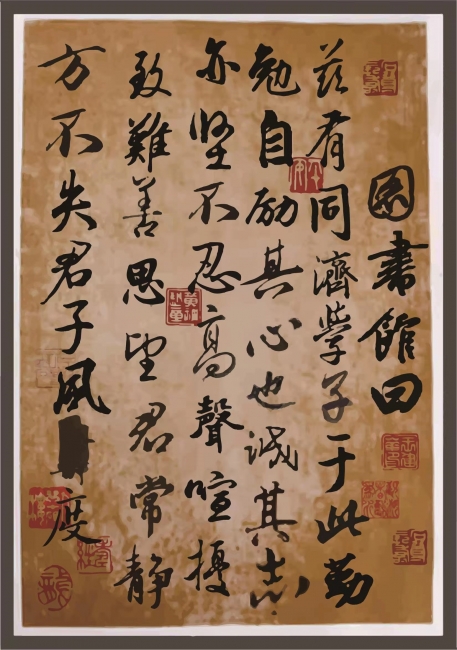 图書館曰
兹有同濟學子于此勤
勉自励其心也诚其志
亦坚不忍高聲喧擾
致難善思望君常静
方不失君子風度